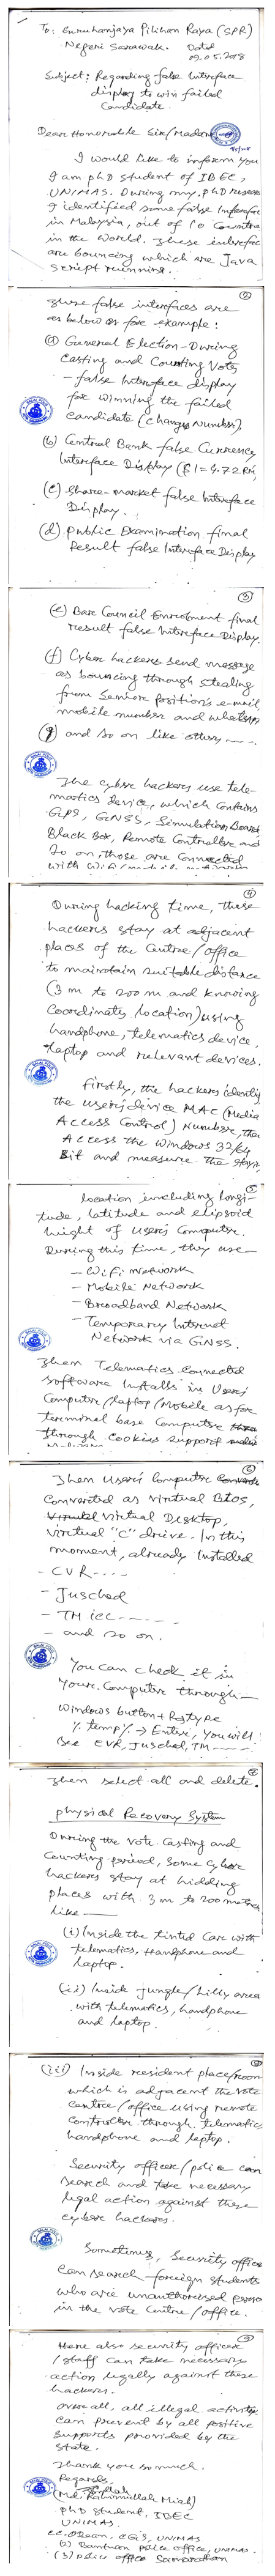 To: Suruhanjaya Pilihan Raya (SPR)
Negeri Sarawak. Dated
09.05.2018
Subject: Regarding false Interface
display to win failed
Candidate.
Dear Honorable Sir/Madam
I would like to inform you
I am phD student of IBEC,
UNIMAS. During my phD research
I identified some false Interface
in Malaysia, out of 10 Countries
in the World. These interface
are bouncing which are Java
Script running.
②
These false interfaces are
as below as for example:
(a) General Election - During
Casting and Counting Votes
- false Interface display
for winning the failed
Candidate (change Number).
(b) Central Bank false Currency
Interface Display ($1=4.72RM)
(c) Share-market false Interface
Display.
(d) Public Examination final
Result false Interface Display
③
(e) Bar Council Enrolment final
result false Interface Display.
(f) Cyber hackers send message
as bouncing through stealing
from Senior position's e-mail,
mobile number and whatsapp
(g) and so on like others ----
The cyber hackers use tele-
matics device, which contains
GPS, GNSS, Simulation Board,
Black Box, Remote Controller and
so on, those are Connected
with
④
During hacking time, these
hackers stay at adjacent
places of the Centre/office
to maintain suitable distance
(3 m to 200 m and knowing
Coordinates location) using
handphone, telematics device,
laptop and relevant devices.
Firstly, the hackers identify
the user's device MAC (Media
Access Control) Number, then
Access the Windows 32/64
Bit and measure the
⑤
location including longi-
tude, latitude and elipsoid
height of user's Computer.
During this time, they use -
- WiFi network
- Mobile Network
- Broadband Network
- Temporary Internet
Network via GNSS.
Then Telematics Connected
software Installs in User's
Computer/laptop/Mobile as for
terminal base Computer
through Cookies support
⑥
Then user's Computer
Converted as virtual BIOS,
virtual Desktop,
virtual "C" drive. In this
moment, already Installed
- CVR----
- Jusched
- TM icc-----
- and so on.
You can check it in
Your Computer through -
Windows button + R, type
% temp% → Enter, You will
See CVR, Jusched, TM----
Then select all and delete.
Physical Recovery System
During the Vote Casting and
Counting period, some cyber
hackers stay at hidding
places with 3 m to 200 metres
like —
(i) Inside the tinted Car with
telematics, Handphone and
laptop.
(ii) Inside jungle/hilly area
with telematics, handphone
and laptop.
⑧
(iii) Inside resident place/room
which is adjacent the vote
centre/office using remote
Controller through telematics
handphone and laptop.
Security officer/police can
search and take necessary
legal action against these
cyber hackers.
Sometimes, Security office
can search foreign students
who are unauthorised person
in the vote Centre/office.
⑨
Here also security officer
/staff can take necessary
action legally against these
hackers.
Over all, all illegal activities
can prevent by all positive
supports provided by the
state.
Thank you so much.
Regards,
(Md. Rahimullah Miah)
phD student, IBEC
UNIMAS
CC. Dean, CGS, UNIMAS
(2) Bantuan police office, UNIMAS.
(3) police office Samarahan